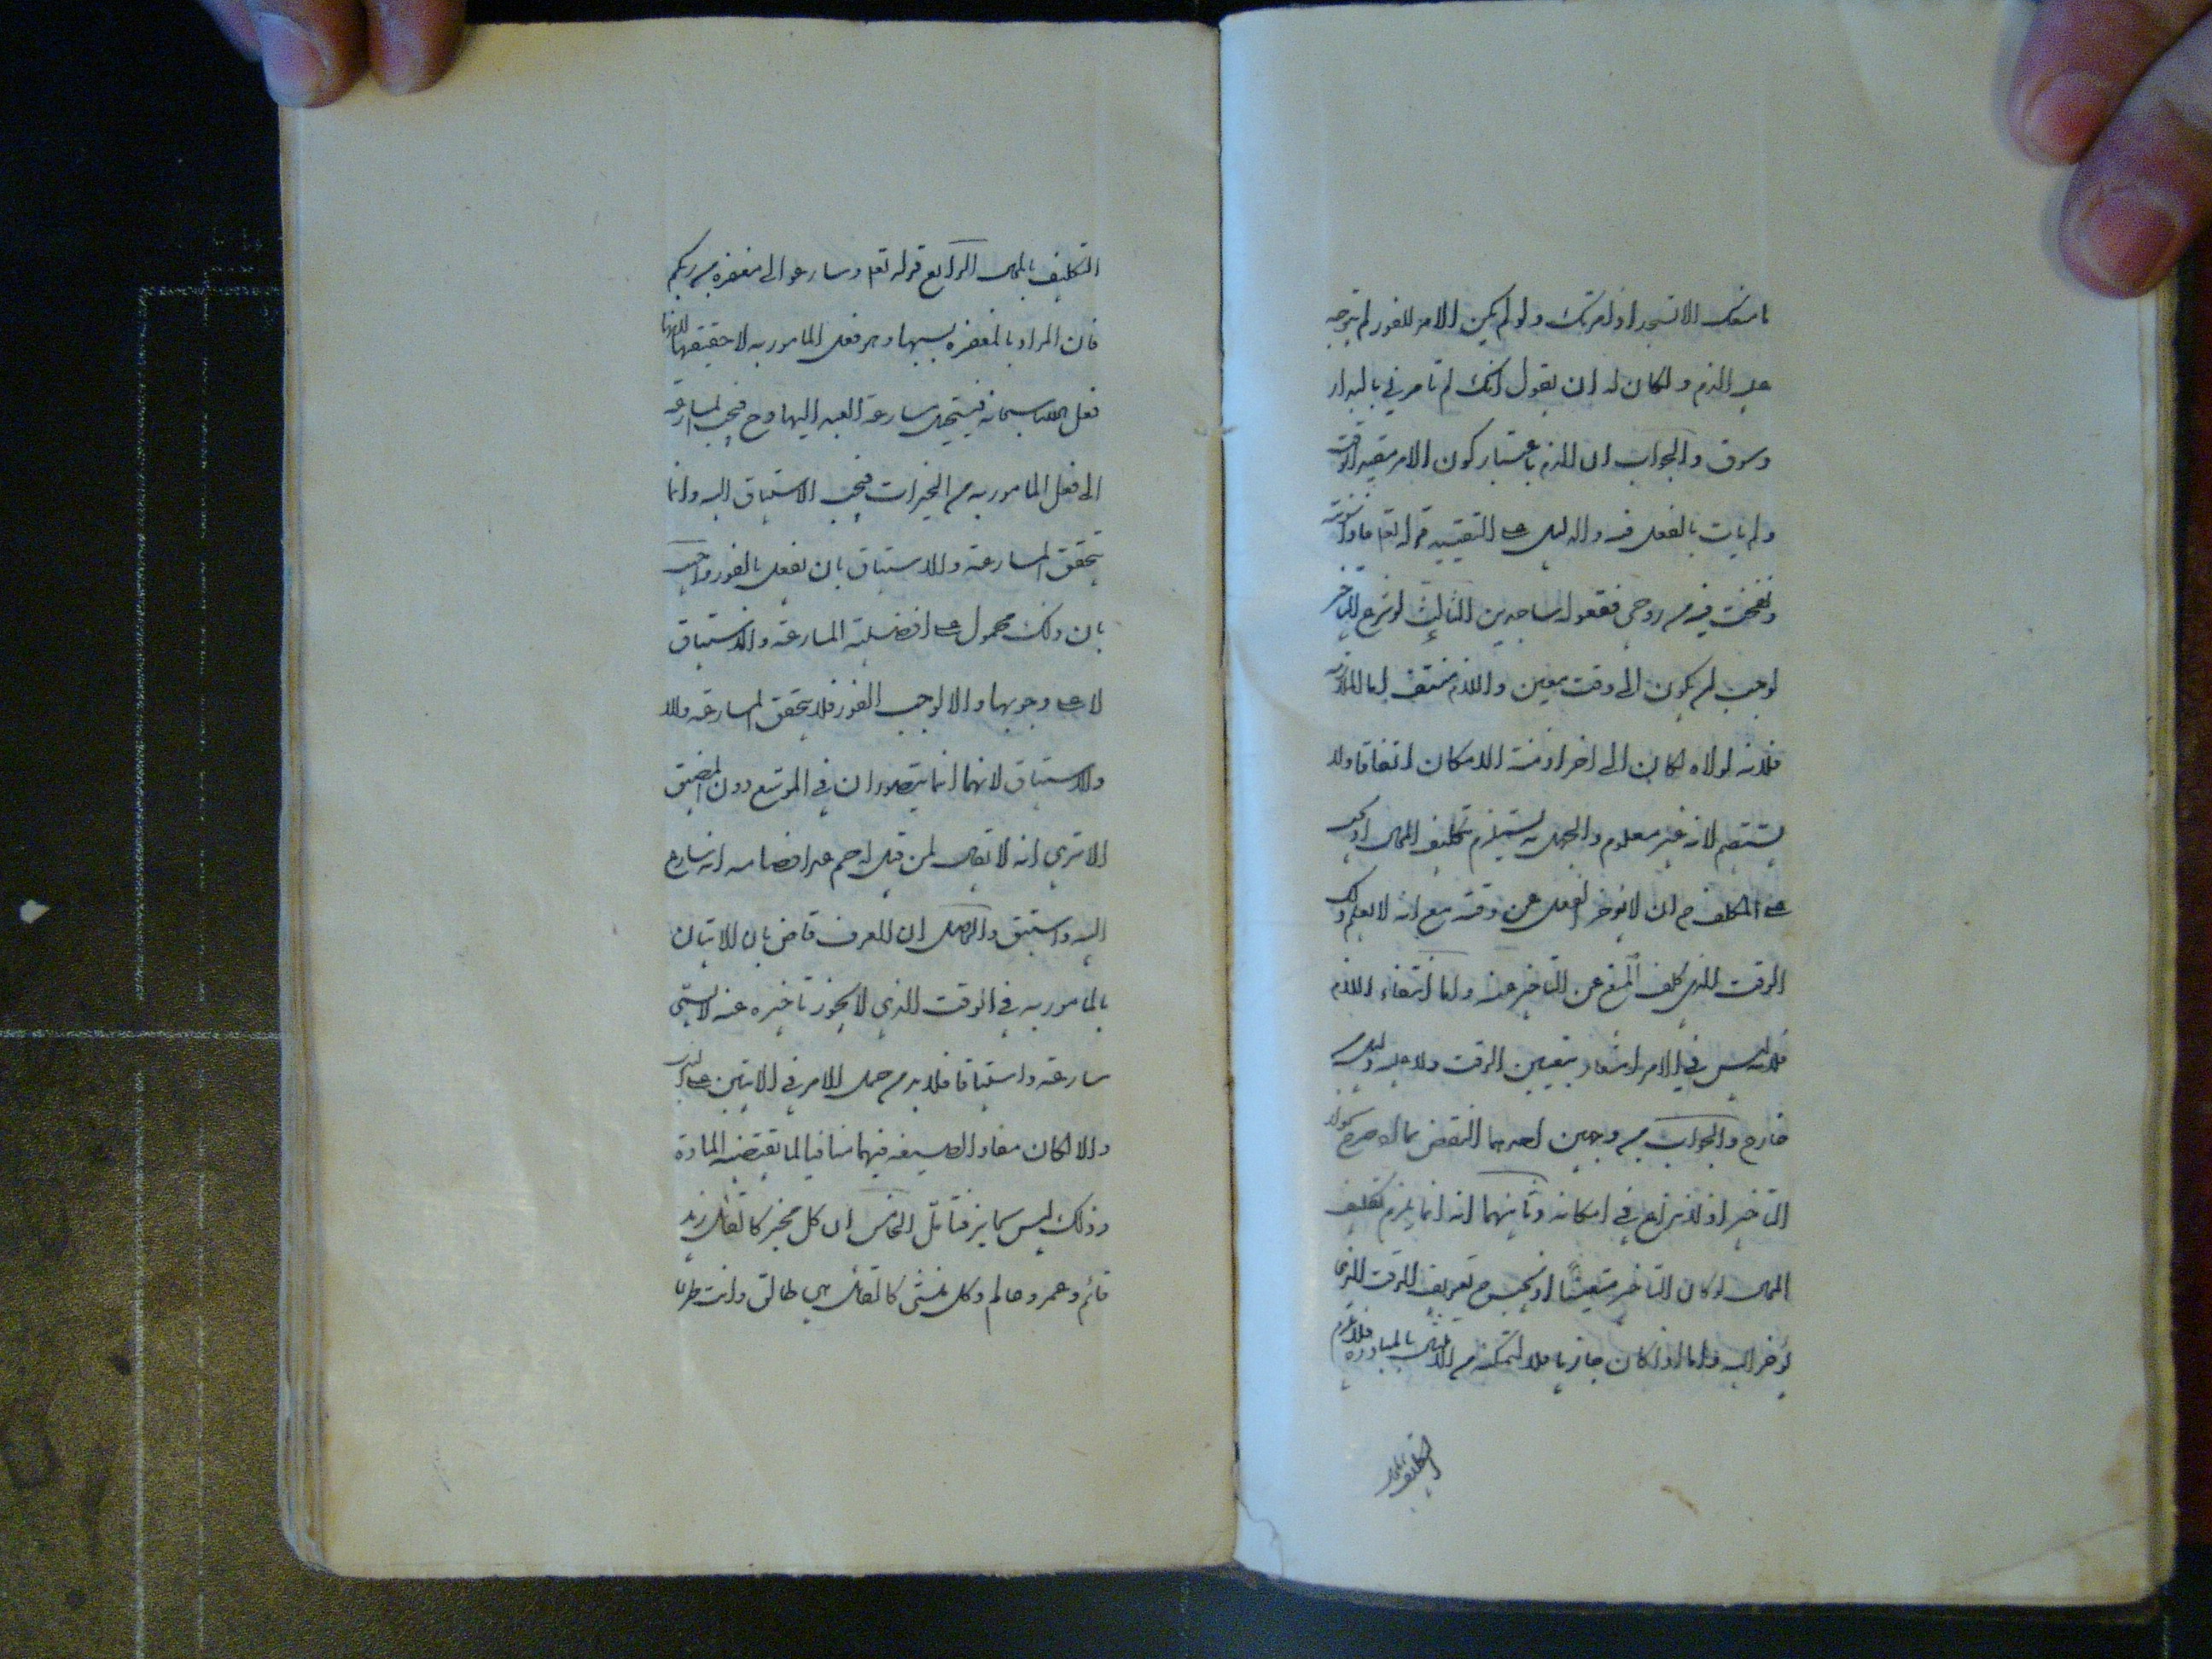 ما منعك الا تسجد اذ امرتك ولو لم يكن الامر للفور لم يتوجه
عليه الذم ولكان له ان يقول انك لم تامرني بالبدار
وسوف والجواب ان الذم باعتبار كون الامر مقيد الوقت
ولم يات بالفعل فيه والدليل على التقييد قوله تعا فاذا سويته
ونفخت فيه من روحي فقعوا له ساجدين الثالث لو شرع التاخير
لوجب ان يكون الى وقت معين واللازم منتف اما الملازمة
فلانه لولاه لكان الى اخر ازمنة الامكان اتفاقا ولا
يستقيم لانه غير معلوم والجهل به يستلزم تكليف المحال اذ يجب
على المكلف ح ان لا يؤخر الفعل عن وقته مع انه لا يعلم ذلك
الوقت الذي كلف بالمنع عن التاخير عنه واما انتفاء اللازم
فلانه ليس في الامر اشعار بتعيين الوقت ولا عليه دليل من
خارج والجواب من وجهين احدهما النقض بما لو صرح بجواز
التاخير اذ لا نزاع في امكانه وثانيهما انه انما يلزم تكليف
المحال لو كان التاخير متعينا اذ يجب ح تعريف الوقت الذي
يؤخر اليه واما اذا كان جائزا فلا لتمكنه من الامتثال بالمبادرة فلا يلزم
التكليف بالمحال
التكليف بالمحال الرابع قوله تعا وسارعوا الى مغفرة من ربكم
فان المراد بالمغفرة سببها وهو فعل المامور به لا حقيقتها لانها
فعل الله سبحانه فيستحيل مسارعة العبد اليها وح فيجب المسارعة
الى فعل المامور به من الخيرات فيجب الاستباق اليه وانما
يتحقق المسارعة والاستباق بان يفعل بالفور واجيب
بان ذلك محمول على افضلية المسارعة والاستباق
لا على وجوبهما والا لوجب الفور فلا يتحقق المسارعة ولا
والاستباق لانهما انما يتصوران في الموسع دون المضيق
الا ترى انه لا يقال لمن قيل له صم غدا فصام انه سارع
اليه واستبق والحاصل ان العرف قاض بان الاتيان
بالمامور به في الوقت الذي لا يجوز تاخيره عنه لا يسمى
مسارعة واستباقا فلا بد من حمل الامر في الايتين على الندب
والا لكان مفاد الصيغة فيهما منافيا لما تقتضيه المادة
وذلك ليس بجايز فتامل الخامس ان كل مخبر كالقائل زيد
قائم وعمرو عالم وكل منشئ كالقائل هي طالق وانت حر